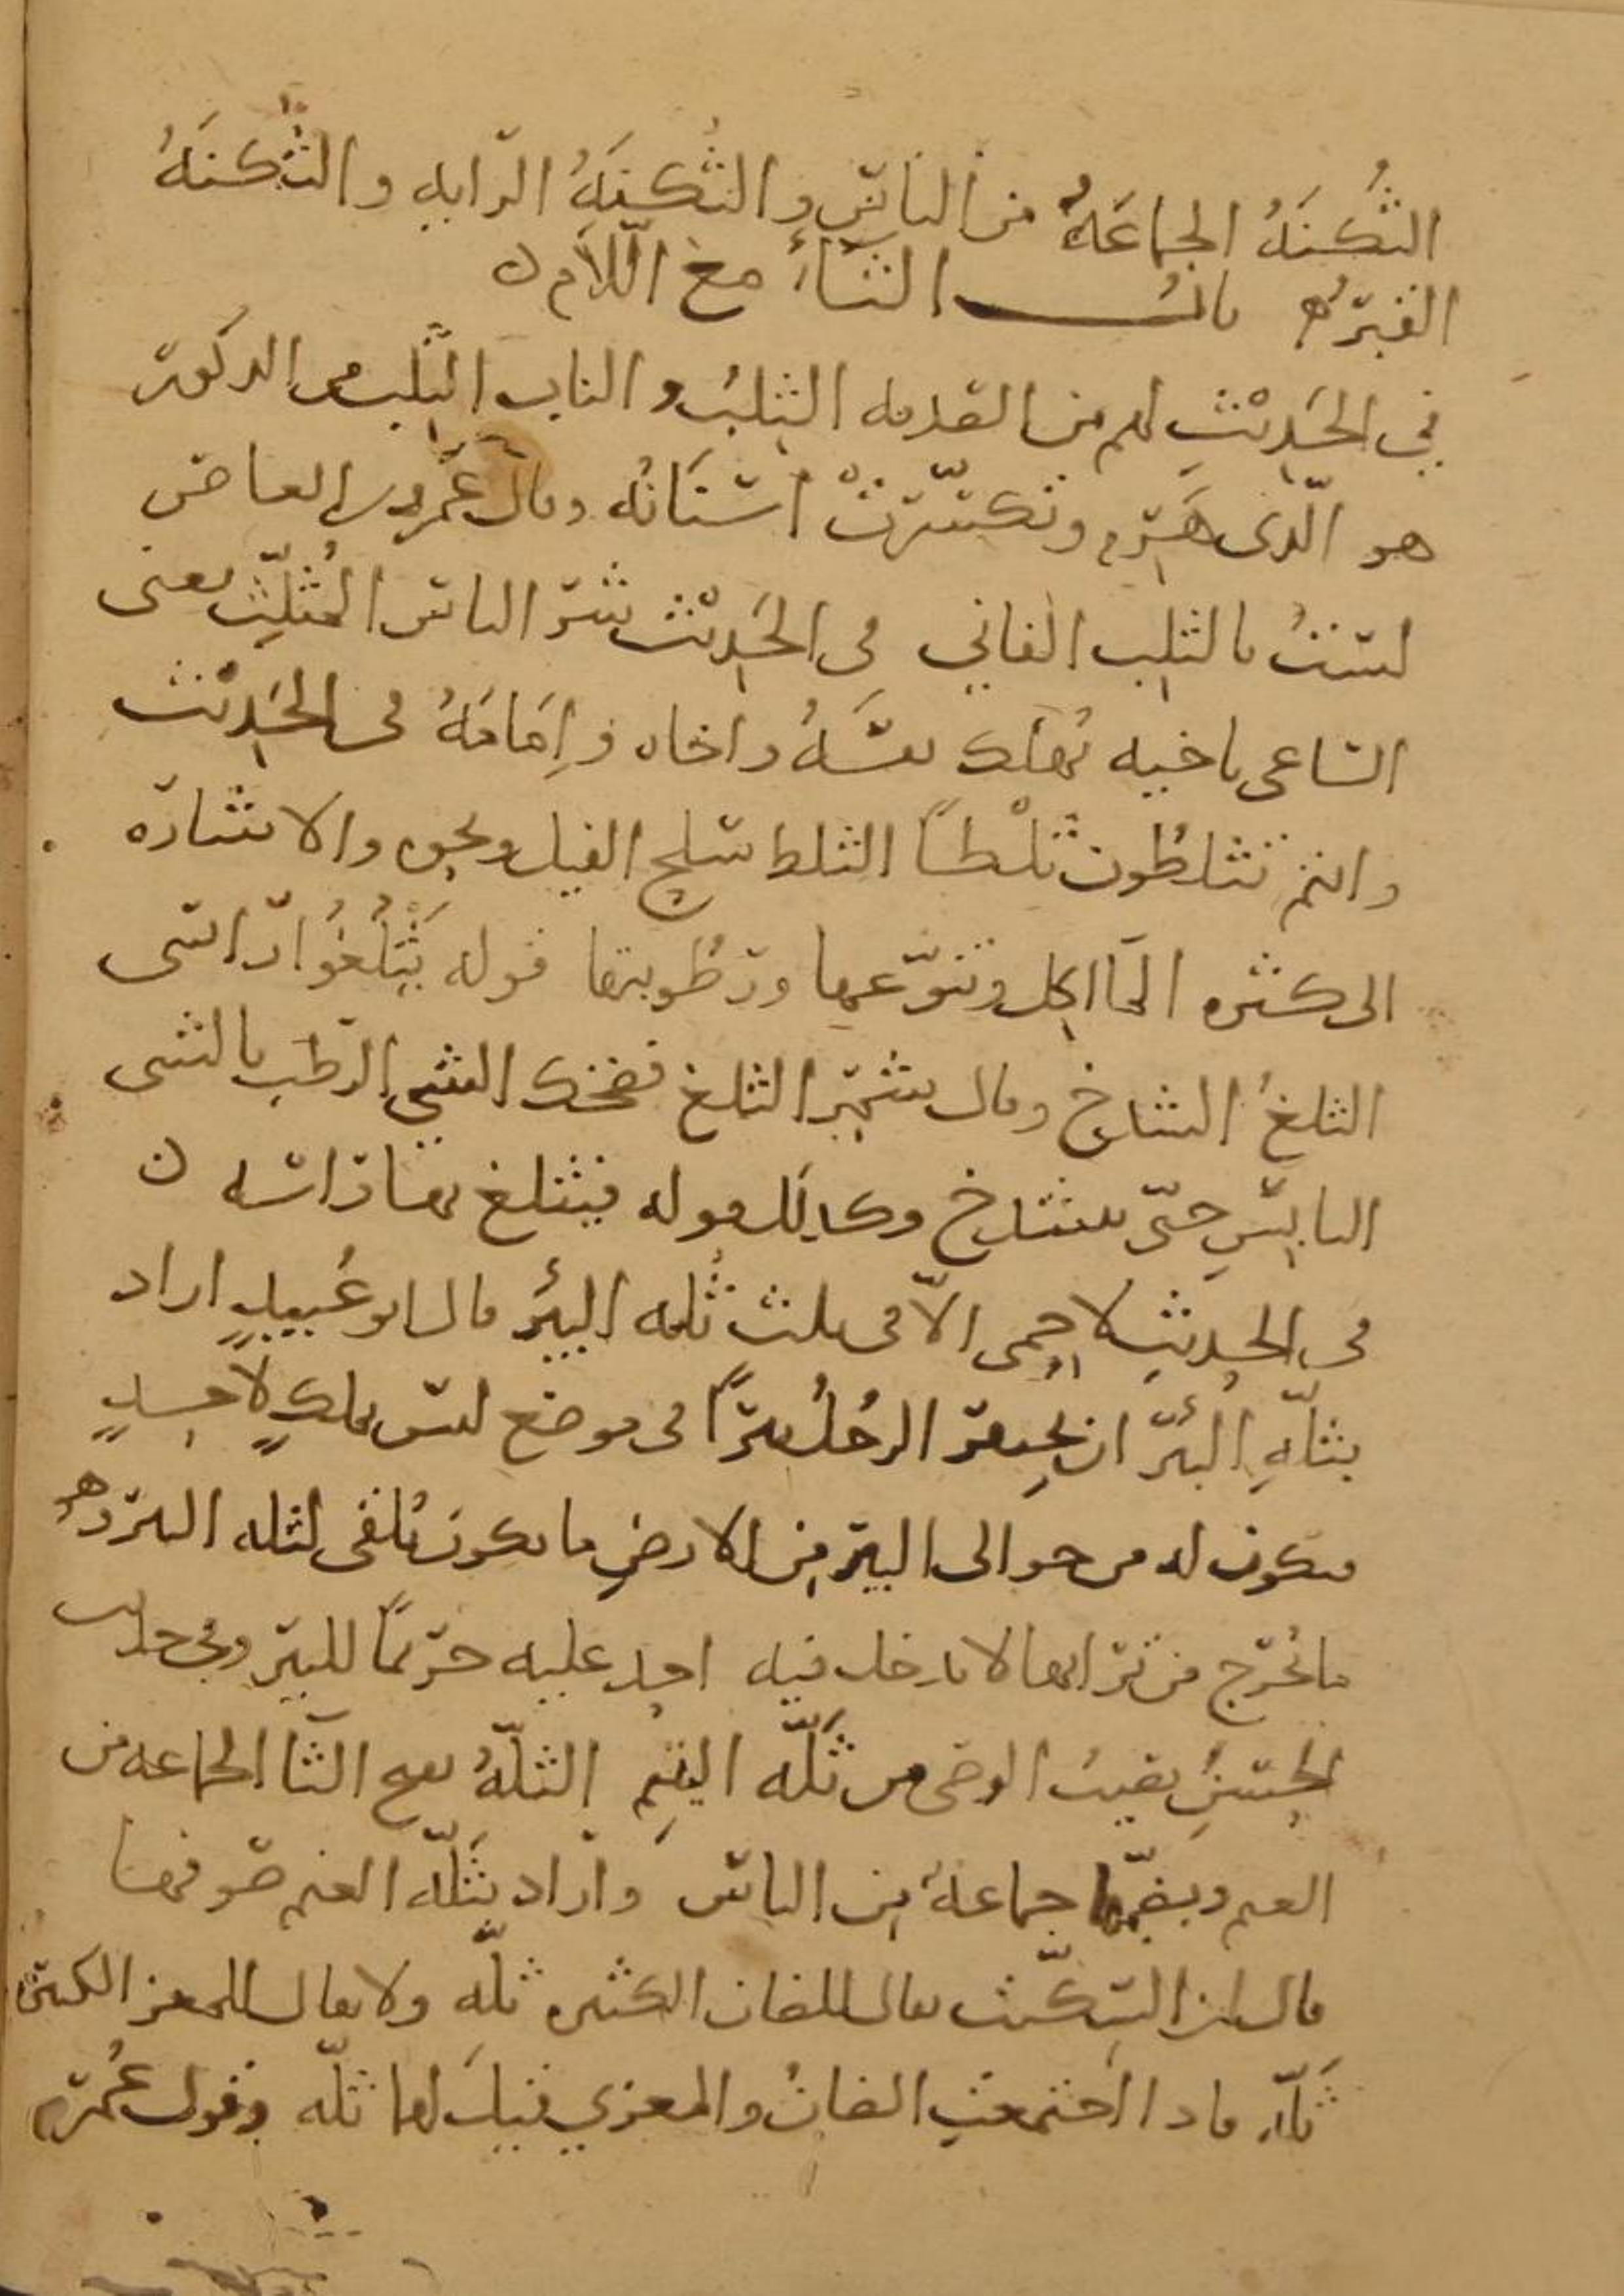 الثُكنَةُ الجماعَةُ من الناسِ والثُكنَةُ الرّايه والثُكنَةُ
القبرُ بابــــ الثاءُ مع اللّام
في الحَديْثِ لهم من الصدقه الثِلبُ والناب الثِلب من الذكور
هو الّذى هَرِم وتكسّرتْ أسنَانُه وقال عَمرو بن العاص
لستُ بالثِلب الفاني في الحَديْث شرّ الناس المُثلِّث يعنى
الساعى باخيه يُهلك نفسَهُ واخاه وإمَامَهُ في الحَديْث
وانتم تثلطُون ثَلْطاً الثلط سلح الفيل ونحوه والاشاره
الى كثره المآاكل وتنوّعها ورطُوبتها قوله يَثْلُغُوا رّاسى
الثلغُ الشدخ وقال شَمِر الثلغ فضخك الشى الرطب بالشى
اليابسِ حتّى ينشدخ وكذلك قوله فيثلغ بها راسه
في الحديثِ لا حِمى الّا في ثلث ثُلّه البِئر قال ابو عُبيدٍ اراد
بثلّهِ البِئر ان يحتفر الرجُلُ بئراً في موضع ليس بملكٍ لاحدٍ
فيكون له من حوالى البير مِن الارضِ ما يكون مُلقى لثله البئر وهو
ما يُخرج من ترابها لا يدخل فيه احد عليه حريماً للبير وفي حديث
الحَسنِ بقيت الوصى من ثَلّه اليتِيم الثلّهُ بفتح الثا الجماعه من
الغنم وبضمّها جماعة مِن الناس وأراد بثَلّه الغنم صوفها
قال ابن السِكّيت يقال للضان الكثيره ثلّه ولا يقال للمعز الكثيره
ثَلّه فاذا اجتمعتِ الضانُ والمعزي قيلَ لهما ثلّه وقول عُمر